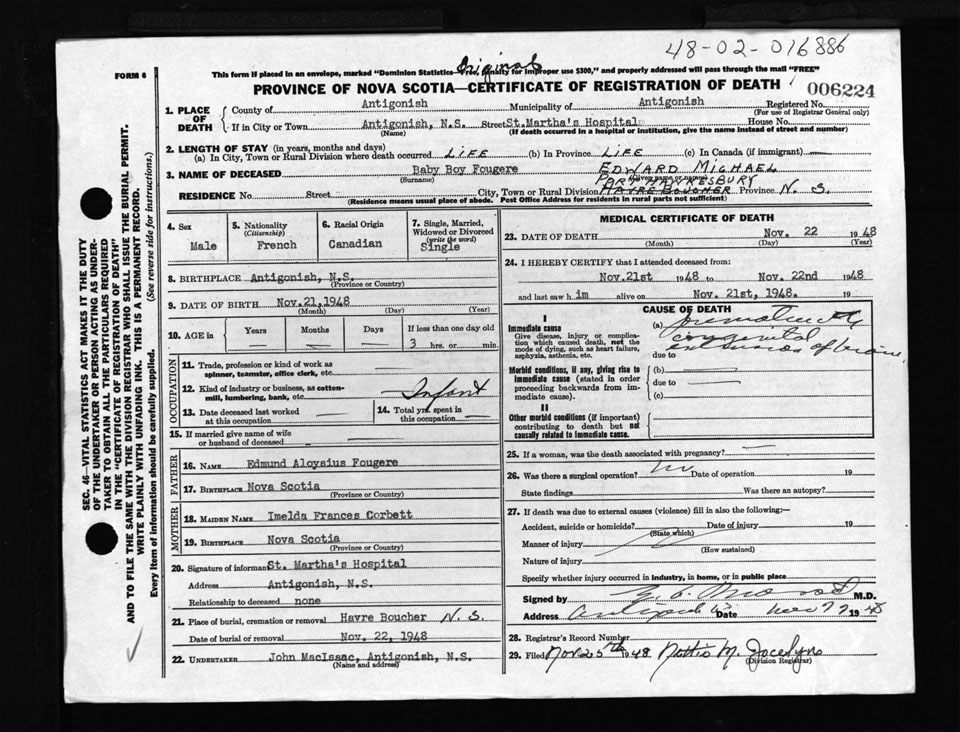 48-02-016886
Original
FORM 6
This form if placed in an envelope, marked "Dominion Statistics—Free, Penalty for improper use $300," and properly addressed will pass through the mail "FREE"
PROVINCE OF NOVA SCOTIA—CERTIFICATE OF REGISTRATION OF DEATH
006224
1. PLACE OF DEATH
County of Antigonish Municipality of Antigonish Registered No.
(For use of Registrar General only)
If in City or Town Antigonish, N.S. Street St.Martha's Hospital House No.
(Name) (If death occurred in a hospital or institution, give the name instead of street and number)
2. LENGTH OF STAY (in years, months and days)
(a) In City, Town or Rural Division where death occurred LIFE (b) In Province LIFE (c) In Canada (if immigrant) —
3. NAME OF DECEASED Baby Boy Fougere EDWARD MICHAEL
(Surname) (Given name or names)
PORT HAWKESBURY
RESIDENCE No. Street City, Town or Rural Division HAVRE BOUCHER Province N. S.
(Residence means usual place of abode. Post Office Address for residents in rural parts not sufficient)
4. Sex
Male
5. Nationality
(Citizenship)
French
6. Racial Origin
Canadian
7. Single, Married, Widowed or Divorced
(write the word)
Single
8. BIRTHPLACE Antigonish, N.S.
(Province or Country)
9. DATE OF BIRTH Nov.21,1948
(Month) (Day) (Year)
10. AGE in Years Months Days If less than one day old
3 hrs. or min.
OCCUPATION
11. Trade, profession or kind of work as
spinner, teamster, office clerk, etc. —
12. Kind of industry or business, as cotton-
mill, lumbering, bank, etc. Infant
13. Date deceased last worked
at this occupation —
14. Total yrs. spent in
this occupation —
15. If married give name of wife
or husband of deceased —
FATHER
16. NAME Edmund Aloysius Fougere
17. BIRTHPLACE Nova Scotia
(Province or Country)
MOTHER
18. MAIDEN NAME Imelda Frances Corbett
19. BIRTHPLACE Nova Scotia
(Province or Country)
20. Signature of informant St. Martha's Hospital
Address Antigonish, N.S.
Relationship to deceased none
21. Place of burial, cremation or removal Havre Boucher N. S.
Date of burial or removal Nov. 22, 1948
22. UNDERTAKER John MacIsaac, Antigonish, N.S.
(Name and address)
MEDICAL CERTIFICATE OF DEATH
23. DATE OF DEATH Nov. 22 1948
(Month) (Day) (Year)
24. I HEREBY CERTIFY that I attended deceased from:
Nov.21st 1948 to Nov. 22nd 1948
and last saw him alive on Nov. 21st, 1948. 19
CAUSE OF DEATH
I
Immediate cause
Give disease, injury or complication which caused death, not the mode of dying, such as heart failure, asphyxia, asthenia, etc.
(a) prematurity
congenital
due to
Morbid conditions, if any, giving rise to immediate cause (stated in order proceeding backwards from immediate cause).
(b)
due to
(c)
II
Other morbid conditions (if important) contributing to death but not causally related to immediate cause.
25. If a woman, was the death associated with pregnancy? —
26. Was there a surgical operation? no Date of operation 19
State findings Was there an autopsy?
27. If death was due to external causes (violence) fill in also the following:—
Accident, suicide or homicide? Date of injury 19
(State which)
Manner of injury
(How sustained)
Nature of injury
Specify whether injury occurred in industry, in home, or in public place
Signed by M.D.
Address Antigonish Date Nov 22 1948
28. Registrar's Record Number
29. Filed Nov 25th 1948 M. Jocelyn
(Division Registrar)
SEC. 46—VITAL STATISTICS ACT MAKES IT THE DUTY
OF THE UNDERTAKER OR PERSON ACTING AS UNDER-
TAKER TO OBTAIN ALL THE PARTICULARS REQUIRED
IN THE "CERTIFICATE OF REGISTRATION OF DEATH"
AND TO FILE THE SAME WITH THE DIVISION REGISTRAR WHO SHALL ISSUE THE BURIAL PERMIT.
WRITE PLAINLY WITH UNFADING INK. THIS IS A PERMANENT RECORD.
Every item of information should be carefully supplied. (See reverse side for instructions.)